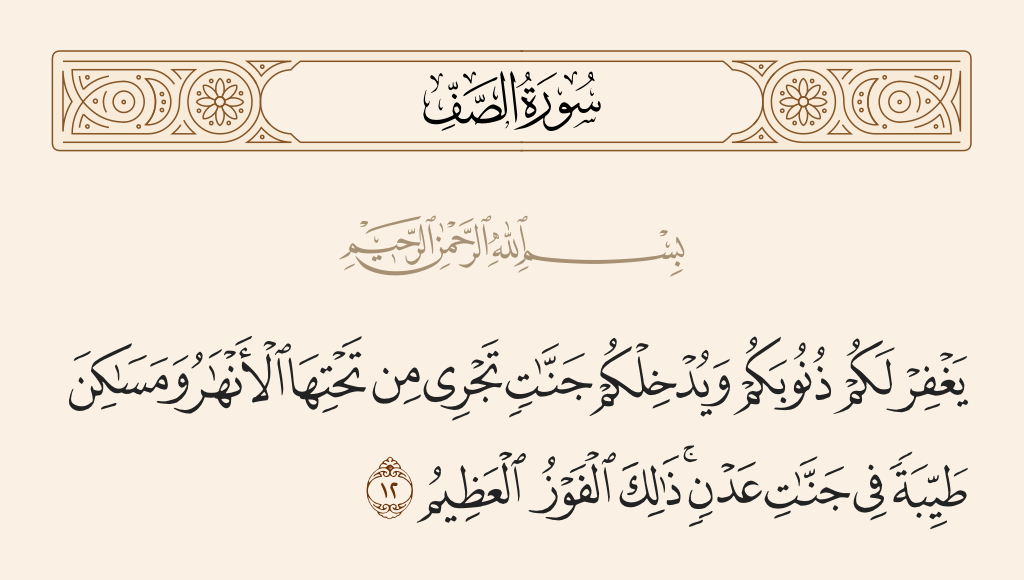 سُورَةُ الصَّفِّ
بِسْمِ ٱللَّهِ ٱلرَّحْمَٰنِ ٱلرَّحِيمِ
يَغْفِرْ لَكُمْ ذُنُوبَكُمْ وَيُدْخِلْكُمْ جَنَّٰتٍ تَجْرِى مِن تَحْتِهَا ٱلْأَنْهَٰرُ وَمَسَٰكِنَ
طَيِّبَةً فِى جَنَّٰتِ عَدْنٍ ۚ ذَٰلِكَ ٱلْفَوْزُ ٱلْعَظِيمُ ١٢